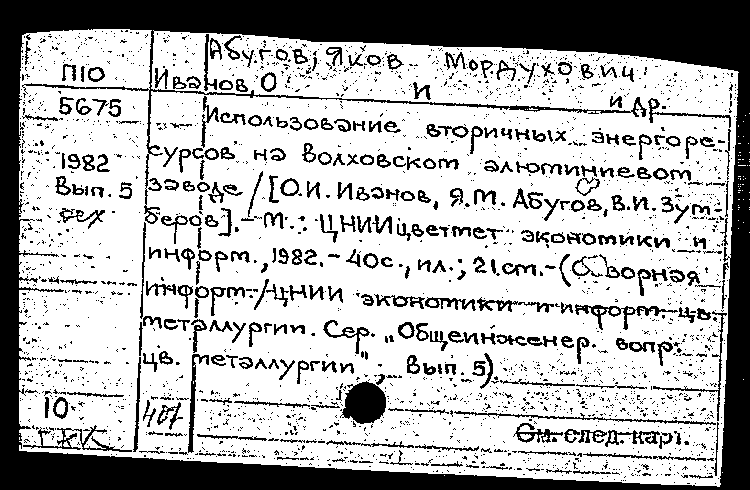 Абугов, Яков Мордухович
П10 Иванов, О и и др.
5675 Использование вторичных энергоре-
1982 сурсов на Волховском алюминиевом
Вып. 5 заводе / [О.И. Иванов, Я.М. Абугов, В.И. Зут-
беров]. - М. : ЦНИИцветмет экономики и
информ., 1982. - 40с., ил.; 21см. - (Обзорная
информ. / ЦНИИ экономики и информ. цв.
металлургии. Сер. „Общеинженер. вопр.
цв. металлургии"; Вып. 5).
10 407
См. след. карт.